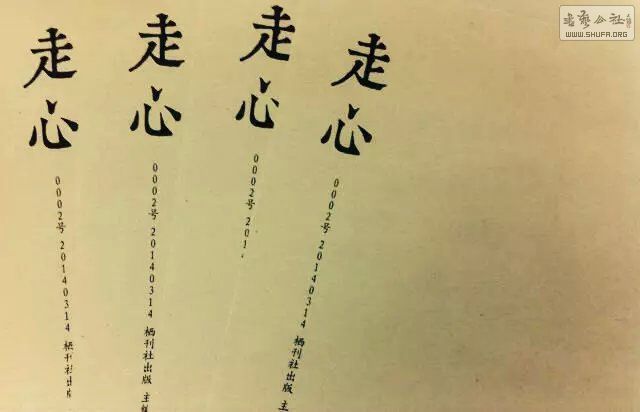 走心
0002号 20140314 栖刊社出版
走心
0002号 20140314 栖刊社出版 主
走心
0002号 201
走心
0002号 20140314 栖刊社出版 主
书艺公社
WWW.SHUFA.ORG